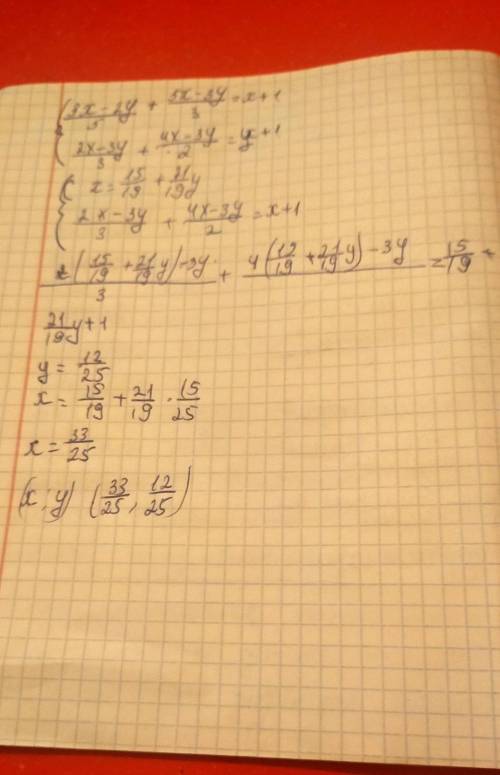 { (3x-2y)/5 + (5x-3y)/3 = x+1
(2x-3y)/3 + (4x-3y)/2 = y+1
{ x = 15/19 + 21/19 y
(2x-3y)/3 + (4x-3y)/2 = x+1
2(15/19 + 21/19 y)-3y / 3 + 4(12/19 + 21/19 y)-3y = 15/19 +
21/19 y+1
y = 12/25
x = 15/19 + 21/19 · 15/25
x = 33/25
(x; y) (33/25, 12/25)